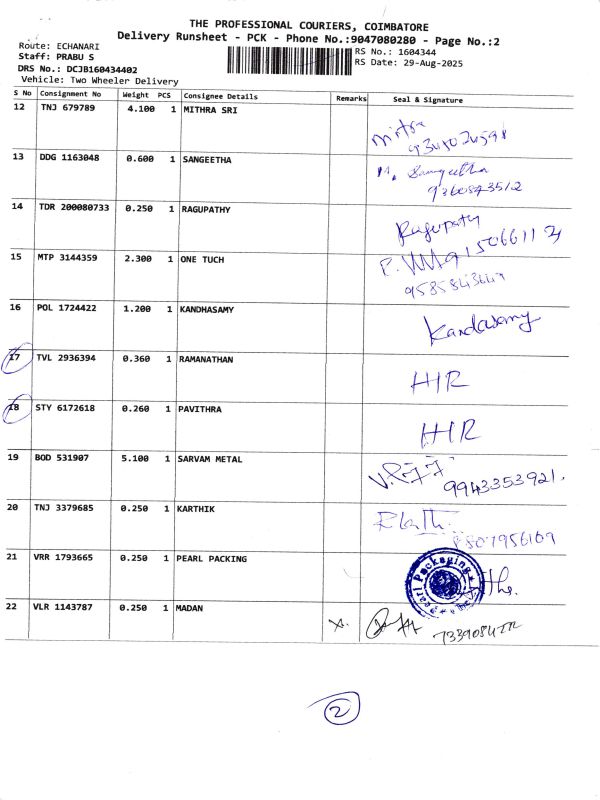 THE PROFESSIONAL COURIERS, COIMBATORE
Delivery Runsheet - PCK - Phone No.:9047080280 - Page No.:2
Route: ECHANARI
RS No.: 1604344
Staff: PRABU S
RS Date: 29-Aug-2025
DRS No.: DCJB160434402
Vehicle: Two Wheeler Delivery
S No Consignment No Weight PCS Consignee Details Remarks Seal & Signature
12 TNJ 679789 4.100 1 MITHRA SRI
Mitra
13 DDG 1163048 0.600 1 SANGEETHA
M. Sangeetha
9360843512
14 TDR 200080733 0.250 1 RAGUPATHY
Ragupathy
15 MTP 3144359 2.300 1 ONE TUCH
16 POL 1724422 1.200 1 KANDHASAMY
Kandasamy
17 TVL 2936394 0.360 1 RAMANATHAN
H/R
18 STY 6172618 0.260 1 PAVITHRA
H/R
19 BOD 531907 5.100 1 SARVAM METAL
9943353921.
20 TNJ 3379685 0.250 1 KARTHIK
8807956109
21 VRR 1793665 0.250 1 PEARL PACKING
Pearl Packaging
22 VLR 1143787 0.250 1 MADAN
2